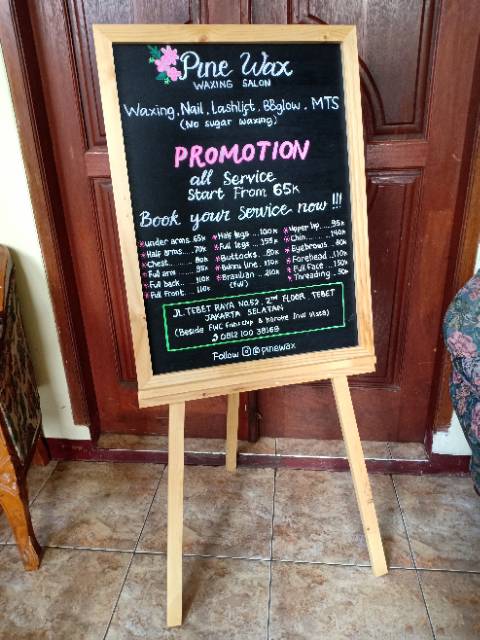 Pine Wax
WAXING SALON
Waxing, Nail, Lashlift, BBglow, MTS
(No sugar waxing)
PROMOTION
all Service
Start From 65K
Book your service now !!!
* Under arms..65K
* Half arms....70K
* Chest........80K
* Full arm ....95K
* Full back....110K
* Full Front...110K
* Half legs ...100K
* Full legs ...155K
* Buttocks..80K
* Bikini line..130K
* Brazilian ..210K
(full)
* Upper lip....95K
* Chin.......140K
* Eyebrows ..80K
* Forehead..110K
* Full Face ..150K
* Threading..50K
JL.TEBET RAYA NO.52, 2nd FLOOR, TEBET
JAKARTA SELATAN
(Beside FWC Fanshop & Karoke Inul Vista)
0812 100 38169
Follow @pinewax